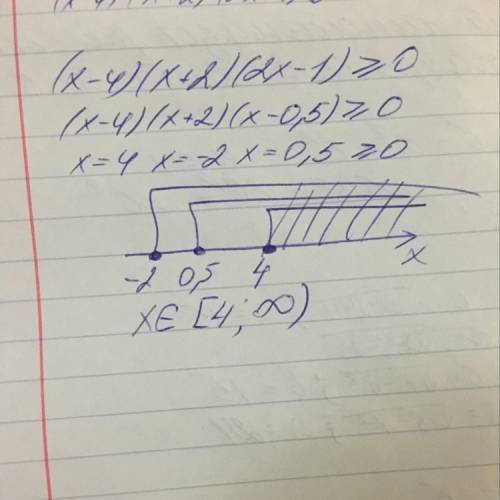 (x-4)(x+2)(2x-1)≥0
(x-4)(x+2)(x-0,5)≥0
x=4 x=-2 x=0,5 ≥0
-2 0,5 4 x
xЄ [4; ∞)